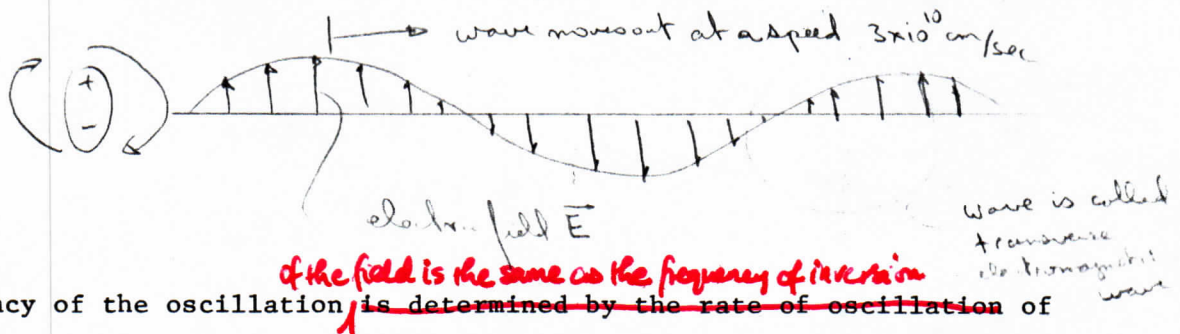 wave moves out at a speed 3x10^10 cm/sec
+
−
electric field E⃗
wave is called
transverse
electromagnetic
wave
of the field is the same as the frequency of inversion
ncy of the oscillation is determined by the rate of oscillation of